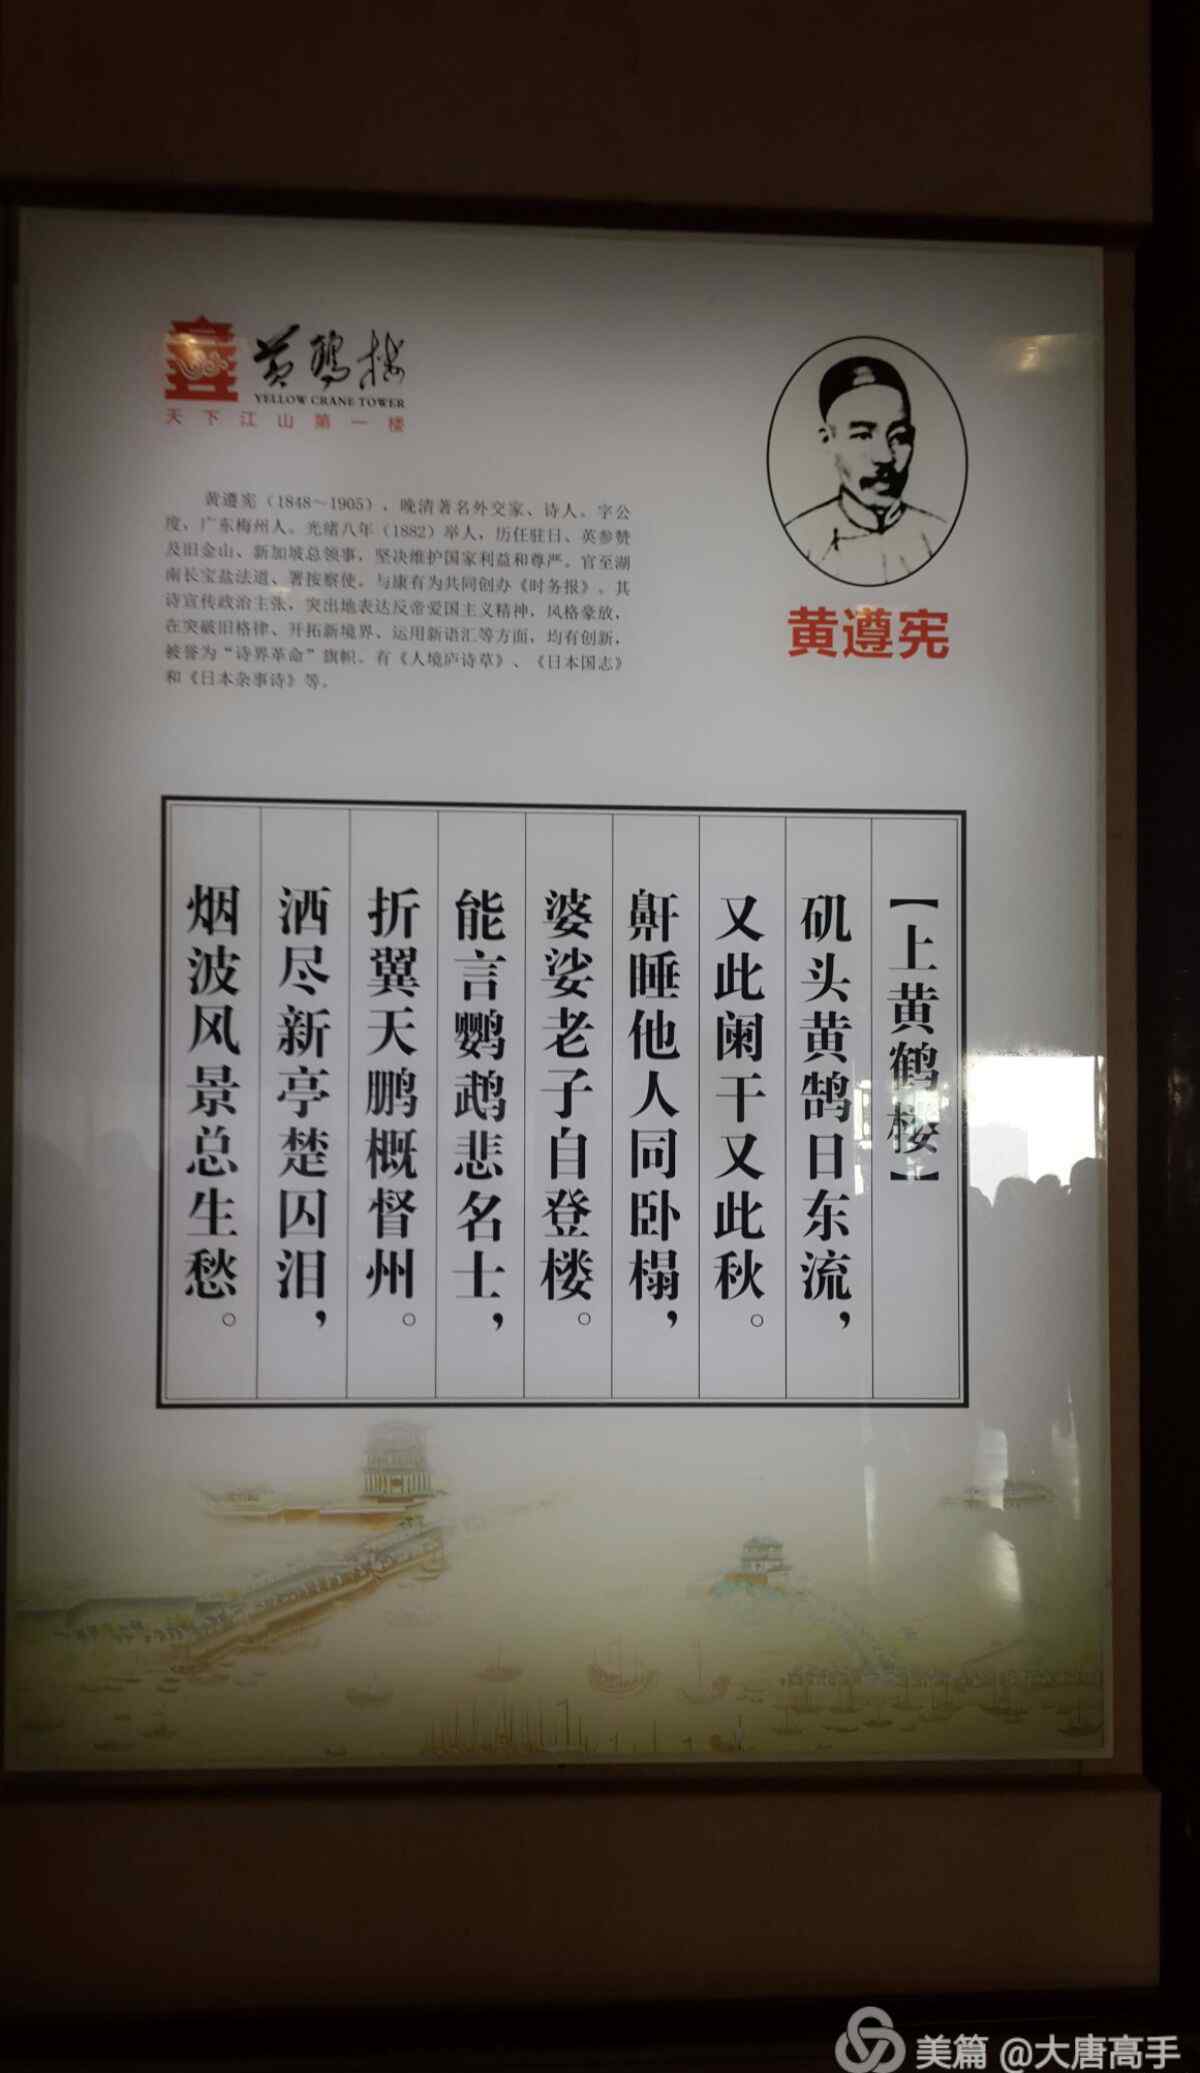 黄鹤楼
YELLOW CRANE TOWER
天下江山第一楼
黄遵宪
黄遵宪（1848～1905），晚清著名外交家、诗人。字公
度，广东梅州人。光绪八年（1882）举人，历任驻日、英参赞
及旧金山、新加坡总领事，坚决维护国家利益和尊严。官至湖
南长宝盐法道、署按察使。与康有为共同创办《时务报》。其
诗宣传政治主张，突出地表达反帝爱国主义精神，风格豪放，
在突破旧格律、开拓新境界、运用新语汇等方面，均有创新，
被誉为“诗界革命”旗帜。有《人境庐诗草》、《日本国志》
和《日本杂事诗》等。
【上黄鹤楼】
矶头黄鹄日东流，
又此阑干又此秋。
鼾睡他人同卧榻，
婆娑老子自登楼。
能言鹦鹉悲名士，
折翼天鹏概督州。
洒尽新亭楚囚泪，
烟波风景总生愁。
美篇 @大唐高手